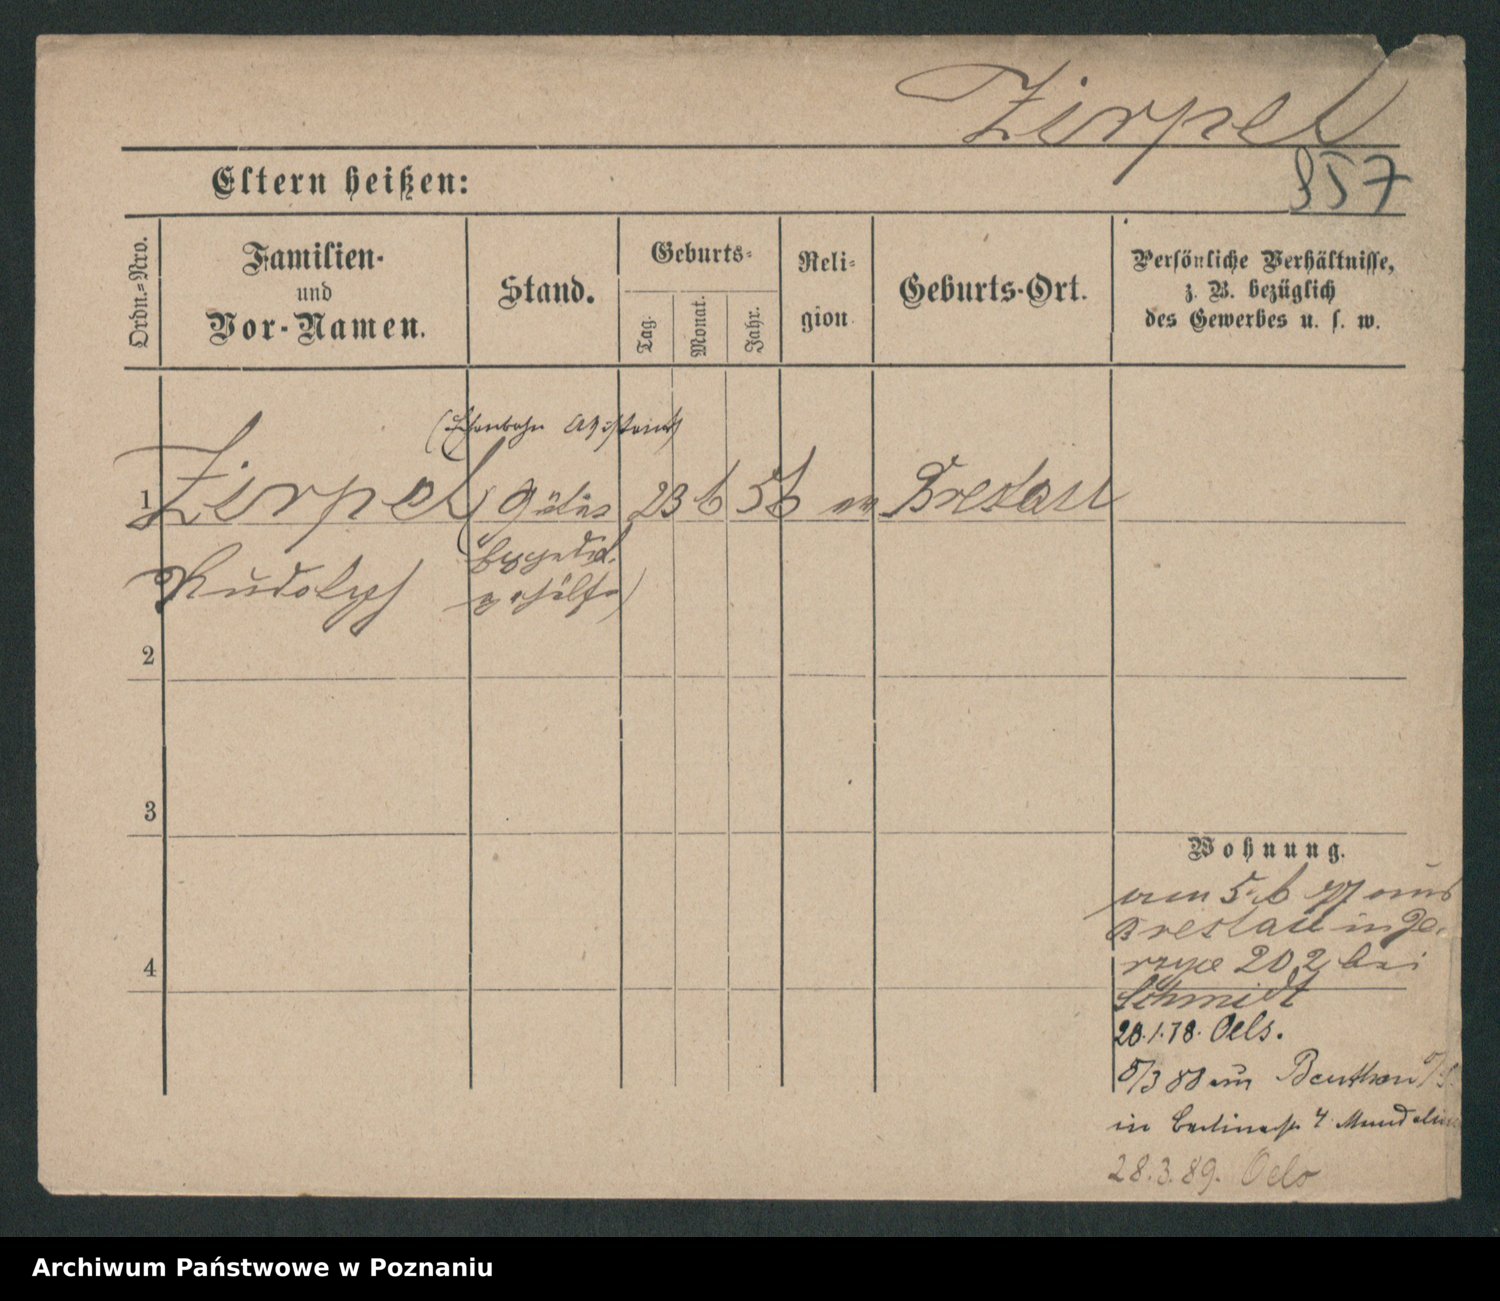 Zirpel
957
Eltern heißen:
Ordn.-Nro.
Familien-
und
Vor-Namen.
Stand.
Geburts-
Tag.
Monat.
Jahr.
Reli-
gion
Geburts-Ort.
Persönliche Verhältnisse,
z. B. bezüglich
des Gewerbes u. s. w.
(Eisenbahn Assistent)
1 Zirpel Güter 23 6 56 ev Breslau
Rudolph
gehülfe)
2
3
4
Wohnung.
5. 6 77 aus
Breslau in
202 bei
Schmidt
20.1.78. Oels.
5/3 88 Beuthen O/S.
in Berlinerstr 4
28.3.89. Oels
Archiwum Państwowe w Poznaniu